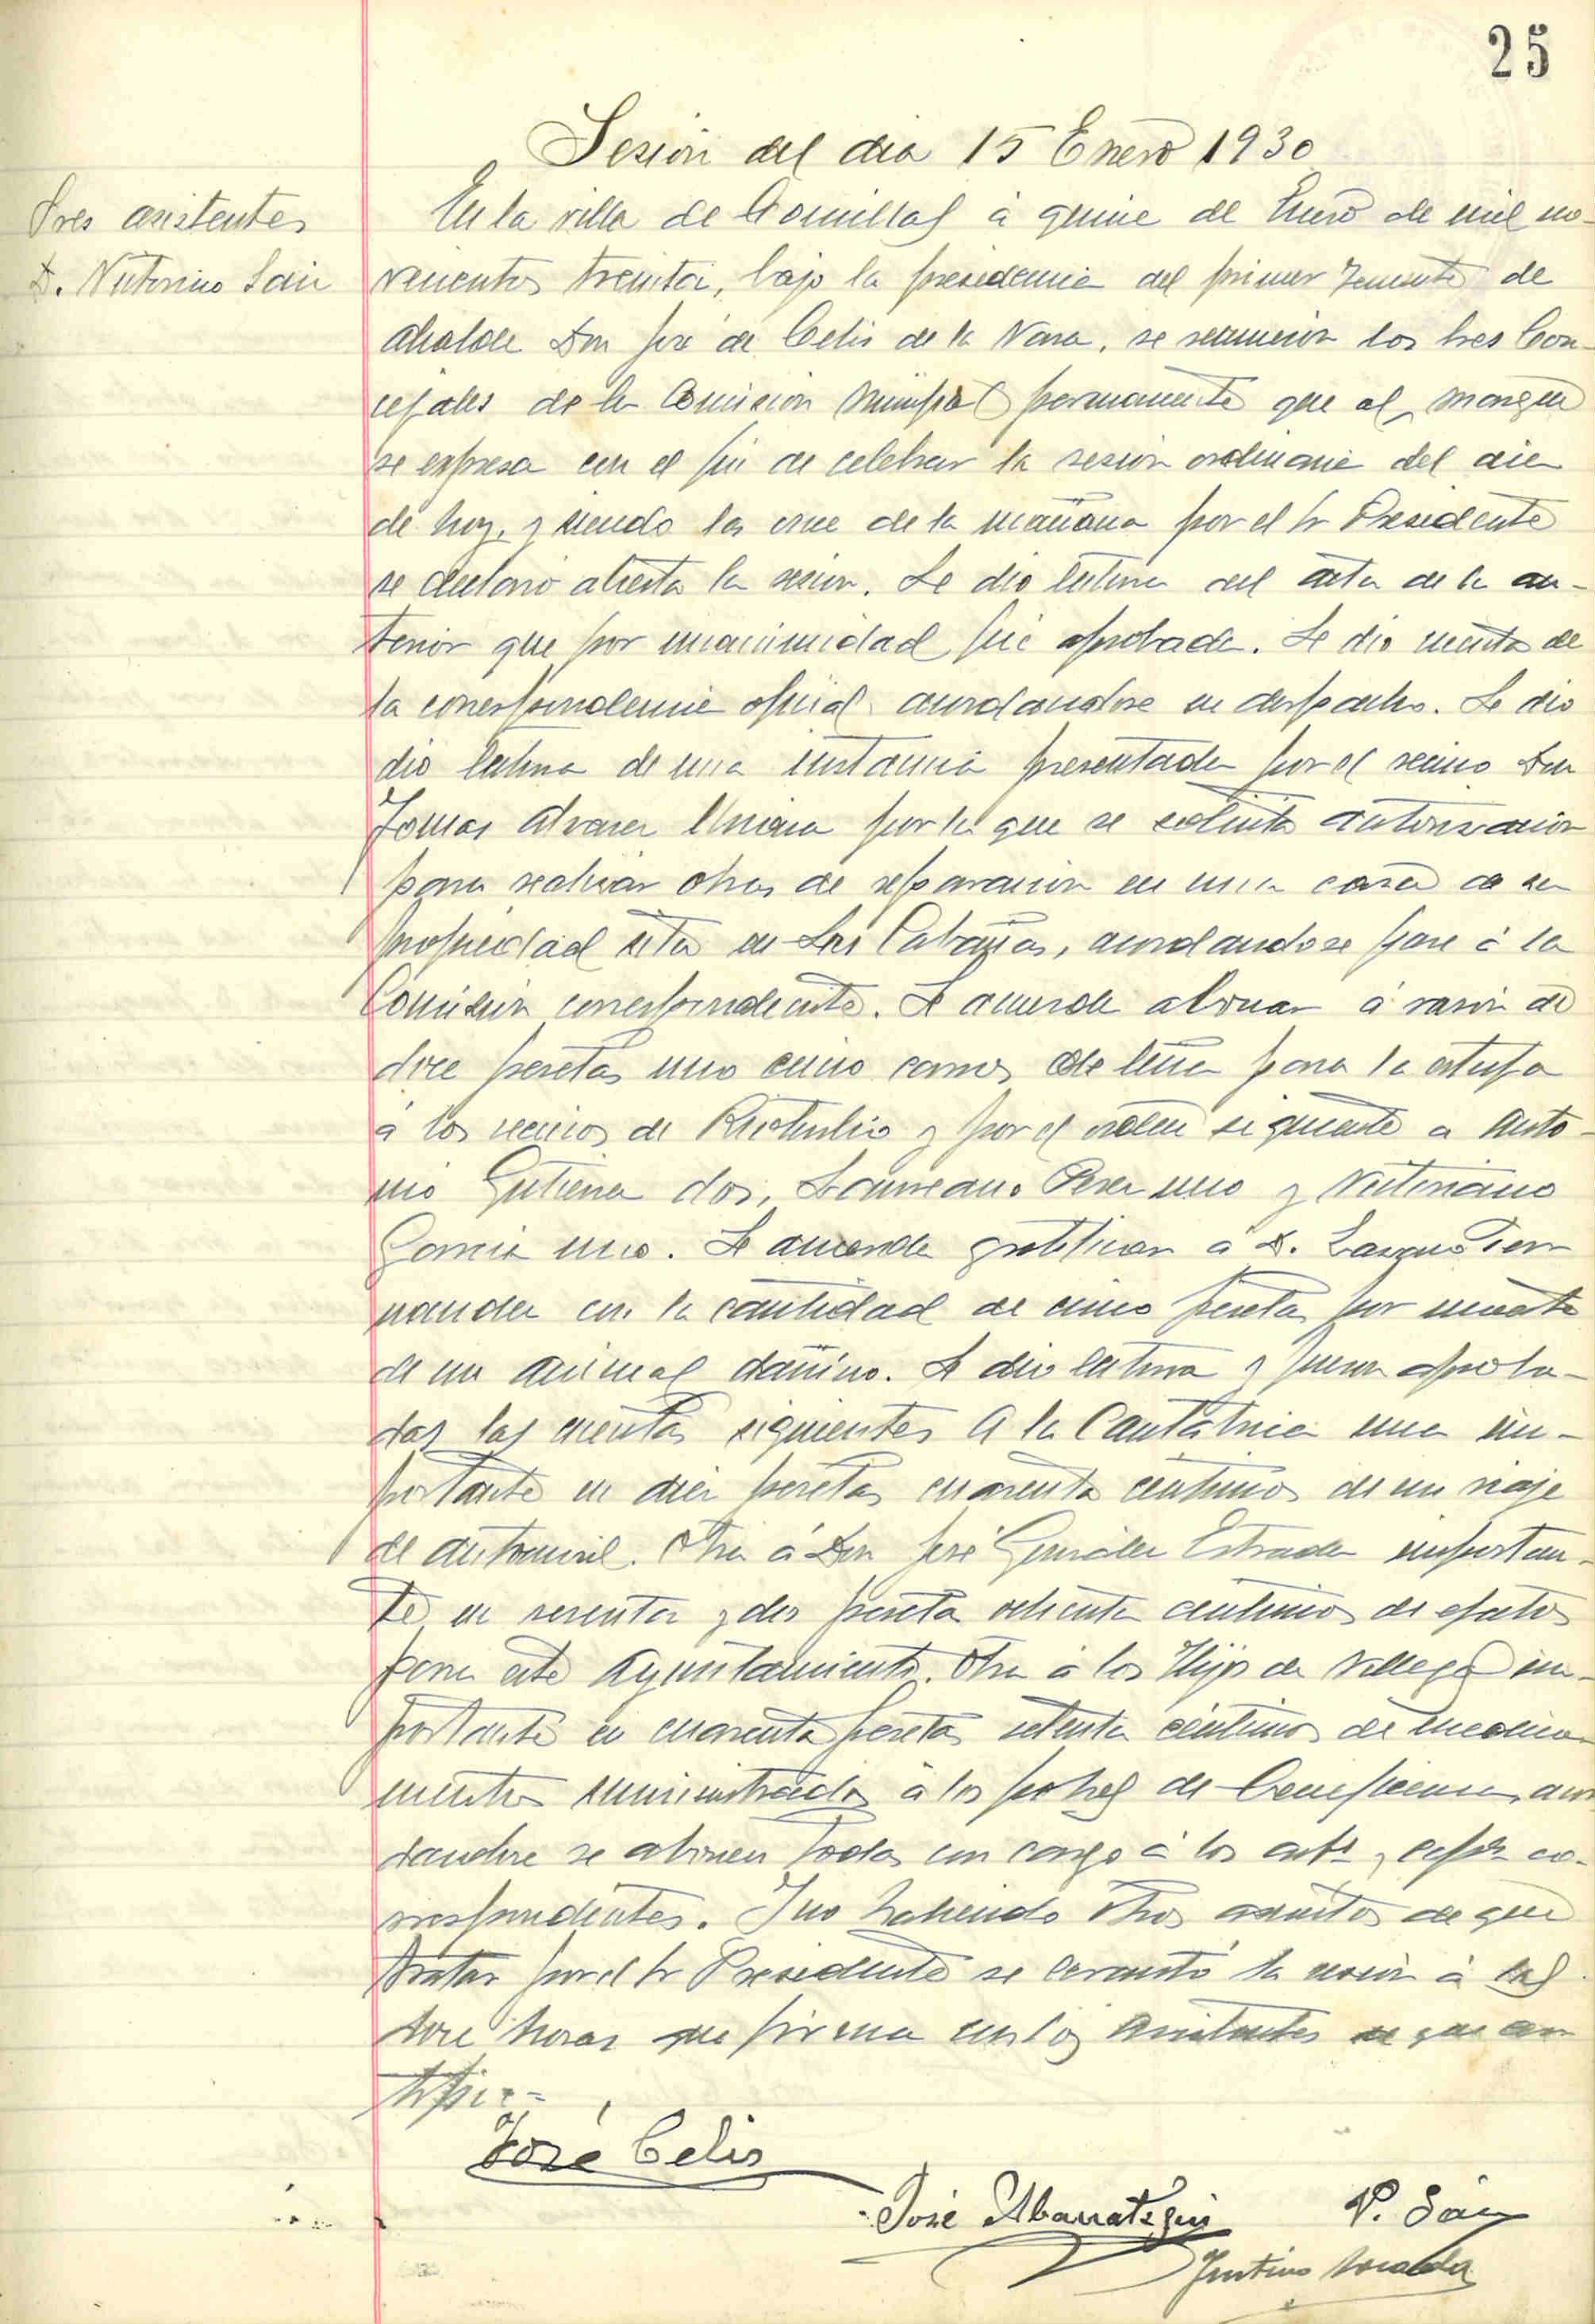 25
Sesión del dia 15 Enero 1930
Sres asistentes
D. Victorino Sainz
En la villa de Comillas á quince de Enero de mil no-
vecientos treinta, bajo la presidencia del primer Teniente de
Alcalde Don José de Celis de la Vara, se reunieron los Sres Con-
cejales de la Comision Municipal permanente que al margen
se expresa con el fin de celebrar la sesion ordinaria del dia
de hoy, y siendo las once de la mañana por el Sr Presidente
se declaró abierta la sesion. Se dio lectura del acta de la an-
terior que por unanimidad fué aprobada. Se dio cuenta de
la correspondencia oficial acordandose su despacho. Se dio
dio lectura de una instancia presentada por el vecino Don
Tomas Alvarez por la que se solicita autorizacion
para realizar obras de reparacion en una casa de su
propiedad sita en Las Cabañas, acordandose pase á la
Comision correspondiente. Se acuerda abonar á razon de
doce pesetas uno cinco carros de leña para la estufa
á los vecinos de Rioturbio y por el orden siguiente a Anto-
nio Gutierrez dos, Laureano Perez uno y Victoriano
Garcia uno. Se acuerda gratificar á D. Fer
nandez con la cantidad de cinco pesetas por muerte
de un animal dañino. Se dio lectura y fueron aproba-
das las cuentas siguientes A la Cantabrica una im-
portante en diez pesetas cuarenta centimos de un viaje
de automovil. Otra á Don José Gonzalez Estrada importan-
te en sesenta y dos peseta ochenta centimos de efectos
para este Ayuntamiento. Otra á los Hijos de Villegas im-
portante en cuarenta pesetas setenta céntimos de medica-
mentos suministrados á los pobres de Beneficencia, acor
dandose se abonen todas con cargo á los artº y capºs co-
rrespondientes. Y no habiendo otros asuntos de que
tratar por el Sr Presidente se levantó la sesion á las
doce horas que firma con los asistentes de que cer
tifico=
José Celis
José Abarrategui
V. Sainz
Justino